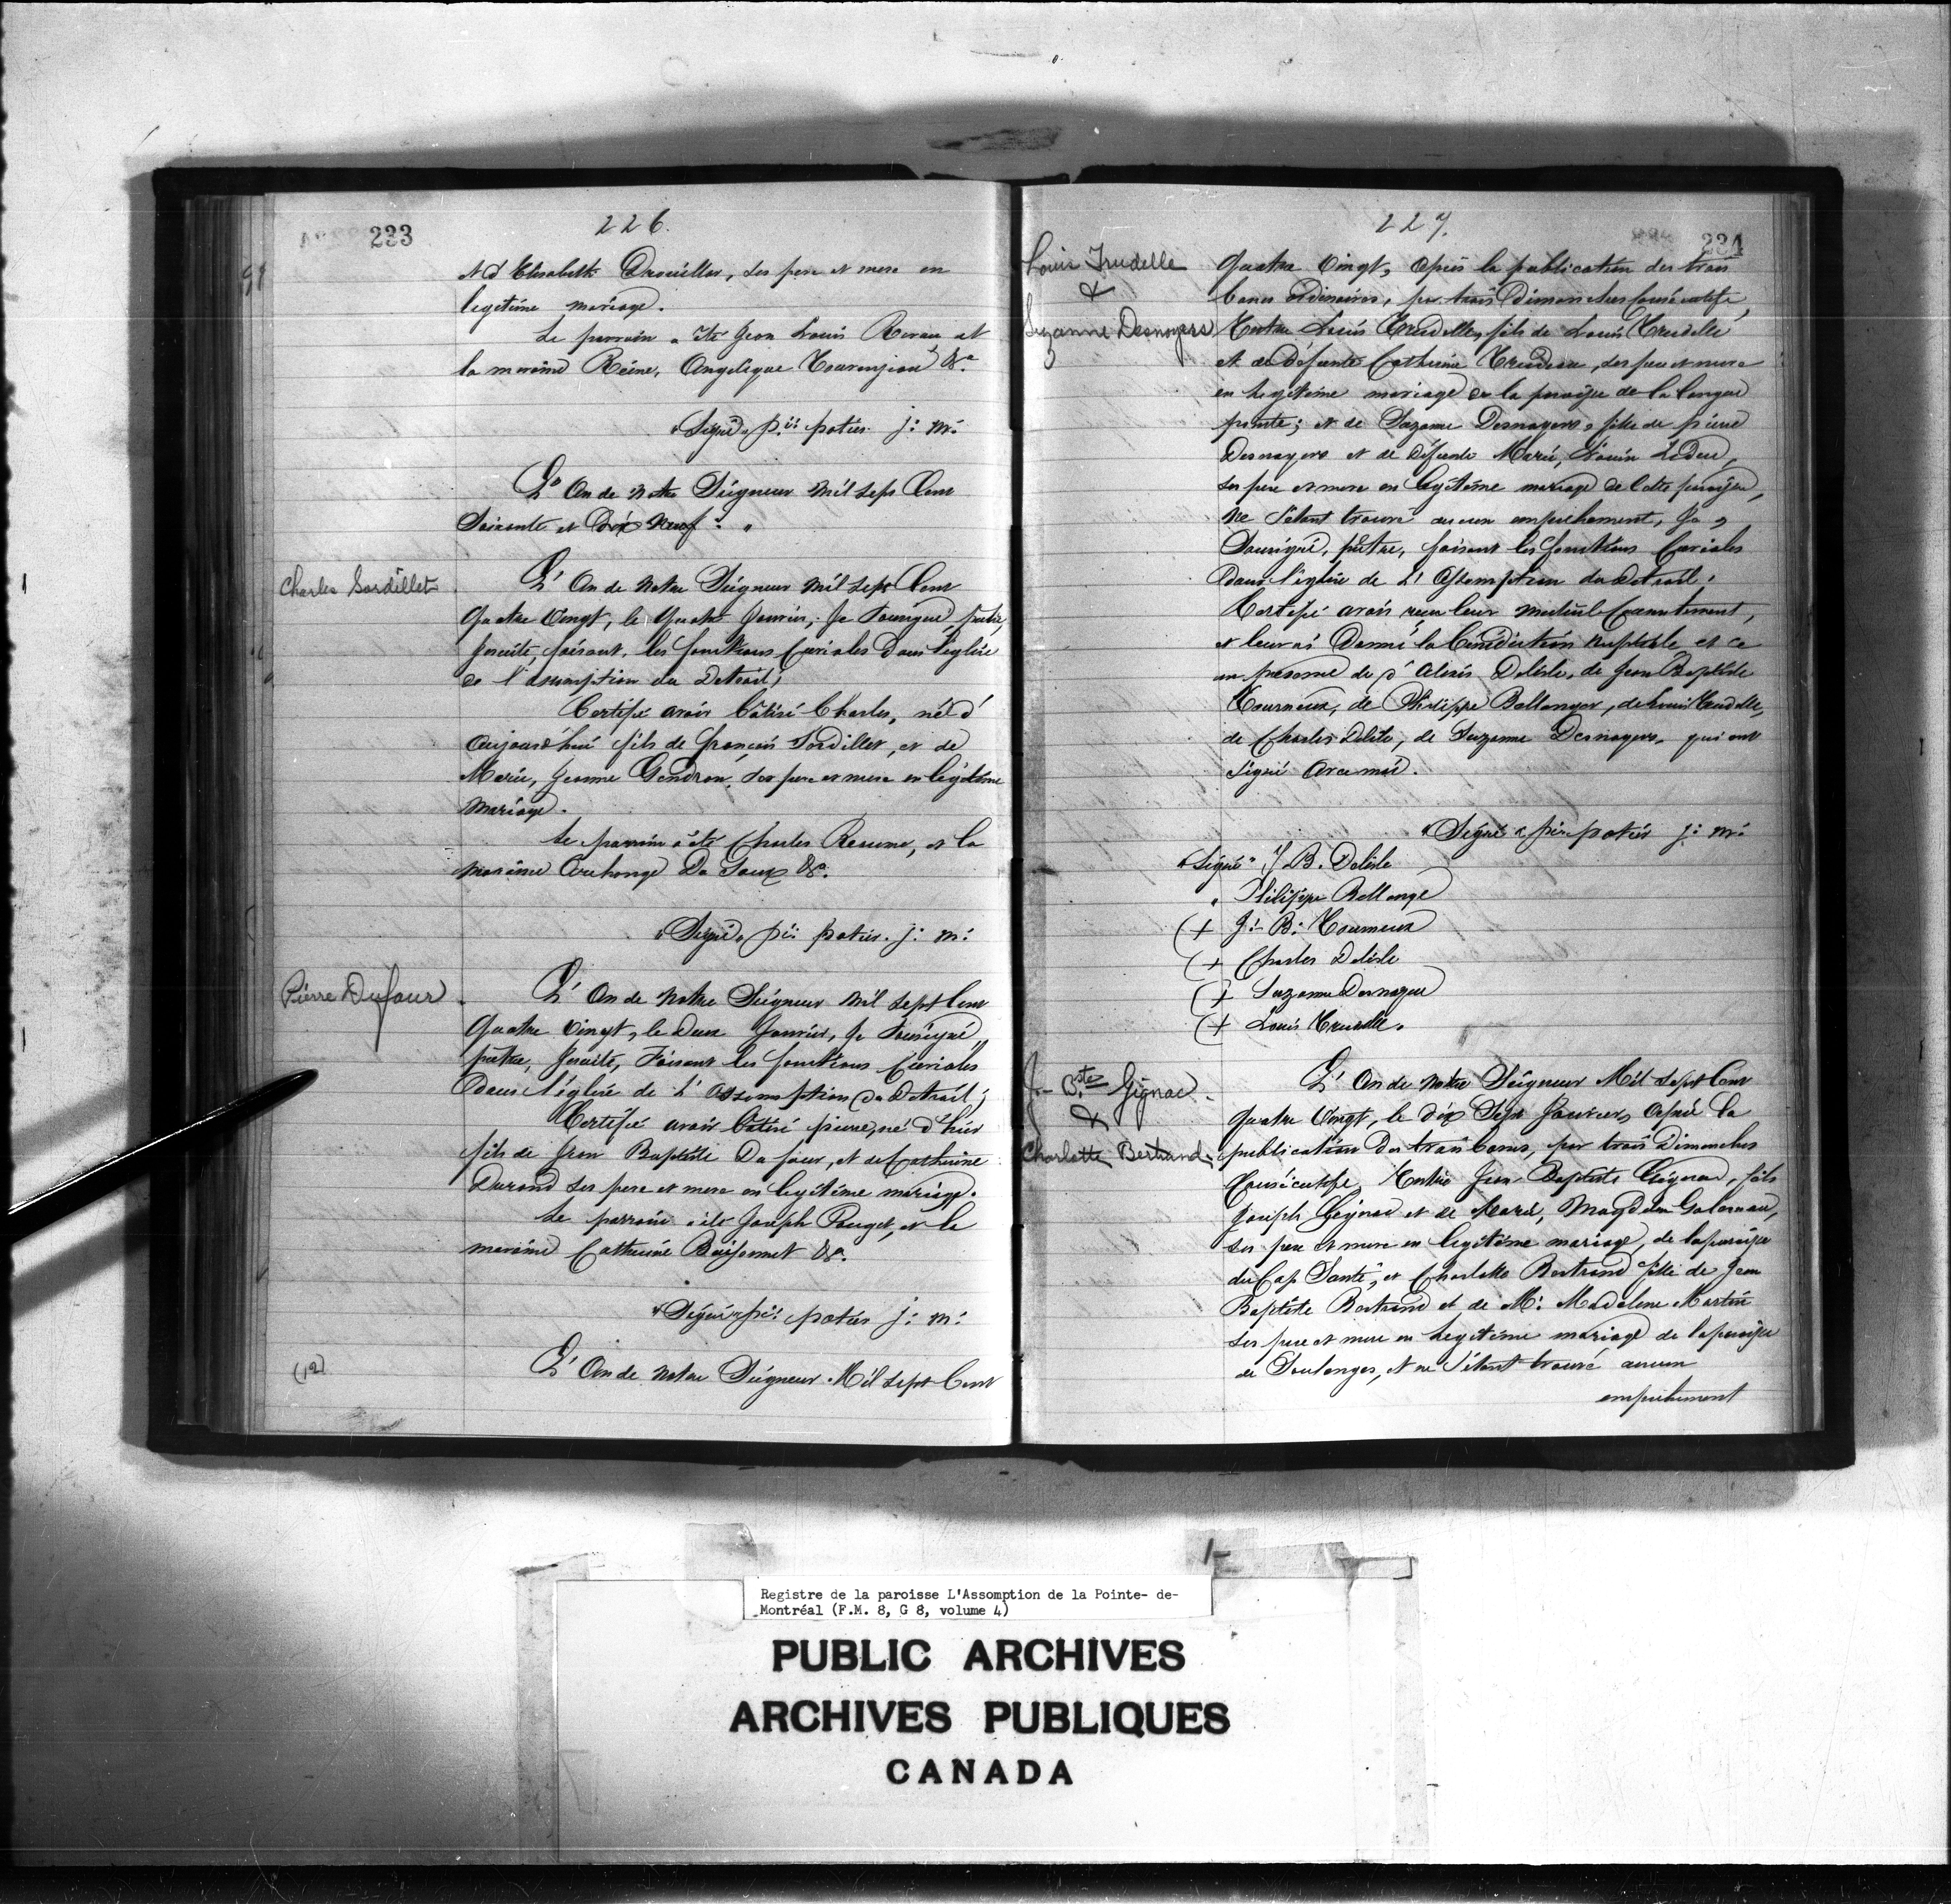 233
226.
et d'Elisabeth Drouiller, ses pere et mere en
legitime mariage.
Le parrain a été Jean Louis Reveau et
la maraine Reine, Angelique Tourenjeau &a.
"Signé" p:re potier j: m:
L'An de notre Seigneur mil sept Cent
Soixante et Dix Neuf. "
Charles Sordillet
L'An de notre Seigneur mil sept Cent
Quatre vingt, le quatre Janvier, Je Sousigné, prêtre,
Jesuite, faisant les fonctions Curiales Dans l'église
de l'assomption du Detroit;
Certifie avoir bâtisé Charles, né d'
aujourd'hui fils de françois Sordillet, et de
Marie, Jeanne Gendron, ses pere et mere en legitime
mariage.
Le parrain a été Charles Reaume, et la
maraine Archange De &a.
"Signé" p:re potier j: m:
Pierre Dufour.
L'An de notre Seigneur mil sept Cent
Quatre vingt, le Janvier, Je Sousigné,
prêtre, Jesuite, Faisant les fonctions Curiales
Dans l'église de L'assomption du Detroit;
Certifie avoir bâtisé pierre, né d'hier
fils de Jean Baptiste Du four, et de Catherine
Durand ses pere et mere en legitime mariage.
Le parrain été Joseph Pouget, et la
maraine Catherine &a.
"Signé" p:re potier j: m:
(12)
L'An de notre Seigneur Mil sept Cent
227.
234
Louis Trudelle
&
Suzanne Desnoyers
Quatre vingt, après la publication des trois
bancs ordinaires, par trois Dimanches Consécutifs,
Entre Louis Trudelle, fils de Louis Trudelle
et de défunte Catherine Trudeau, ses pere et mere
en legitime mariage de la paroisse de la longue
pointe; et de Suzanne Desnoyers, fille de pierre
Desnoyers et de défunte Marie, Louise Leduc,
ses pere et mere en legitime mariage de Cette paroisse,
Ne s'étant trouvé aucun empechement, Je
Sousigné, prêtre, faisant les fonctions Curiales
Dans l'église de L'Assomption du Detroit.
Certifie avoir recu leur mutuel Consentement,
et leur ai Donné la bénédiction nuptiale et ce
en présence de s' Alexis Delisle, de Jean Baptiste
Tourneux, de Philippe Bellanger, de Louis Trudelle,
de Charles Delisle, de Suzanne Desnoyers, qui ont
signé avec moi.
"Signé" p:re potier j: m:
"Signé" J B. Delisle
" Philippe Bellange
(+ J:- B: Tourneux
(+ Charles Delisle
(+ Suzanne Desnoyer
(+ Louis Trudelle.
J- Bte Gignac.
&
Charlotte Bertrand.
L'An de notre Seigneur Mil sept Cent
Quatre vingt, le dix Sept Janvier, après la
publication des trois bancs, par trois Dimanches
Consécutifs, Entre Jean Baptiste Gignac, fils
Joseph Gignac et de Marie, Magdalen,
ses pere et mere en legitime mariage, de la paroisse
du Cap Santé, et Charlotte Bertrand fille de Jean
Baptiste Bertrand et de M: Madelene Martin
ses pere et mere en legitime mariage de la paroisse
de Soulanges, et ne s'étant trouvé aucun
empechement
Registre de la paroisse L'Assomption de la Pointe- de-
Montréal (F.M. 8, G 8, volume 4)
PUBLIC ARCHIVES
ARCHIVES PUBLIQUES
CANADA